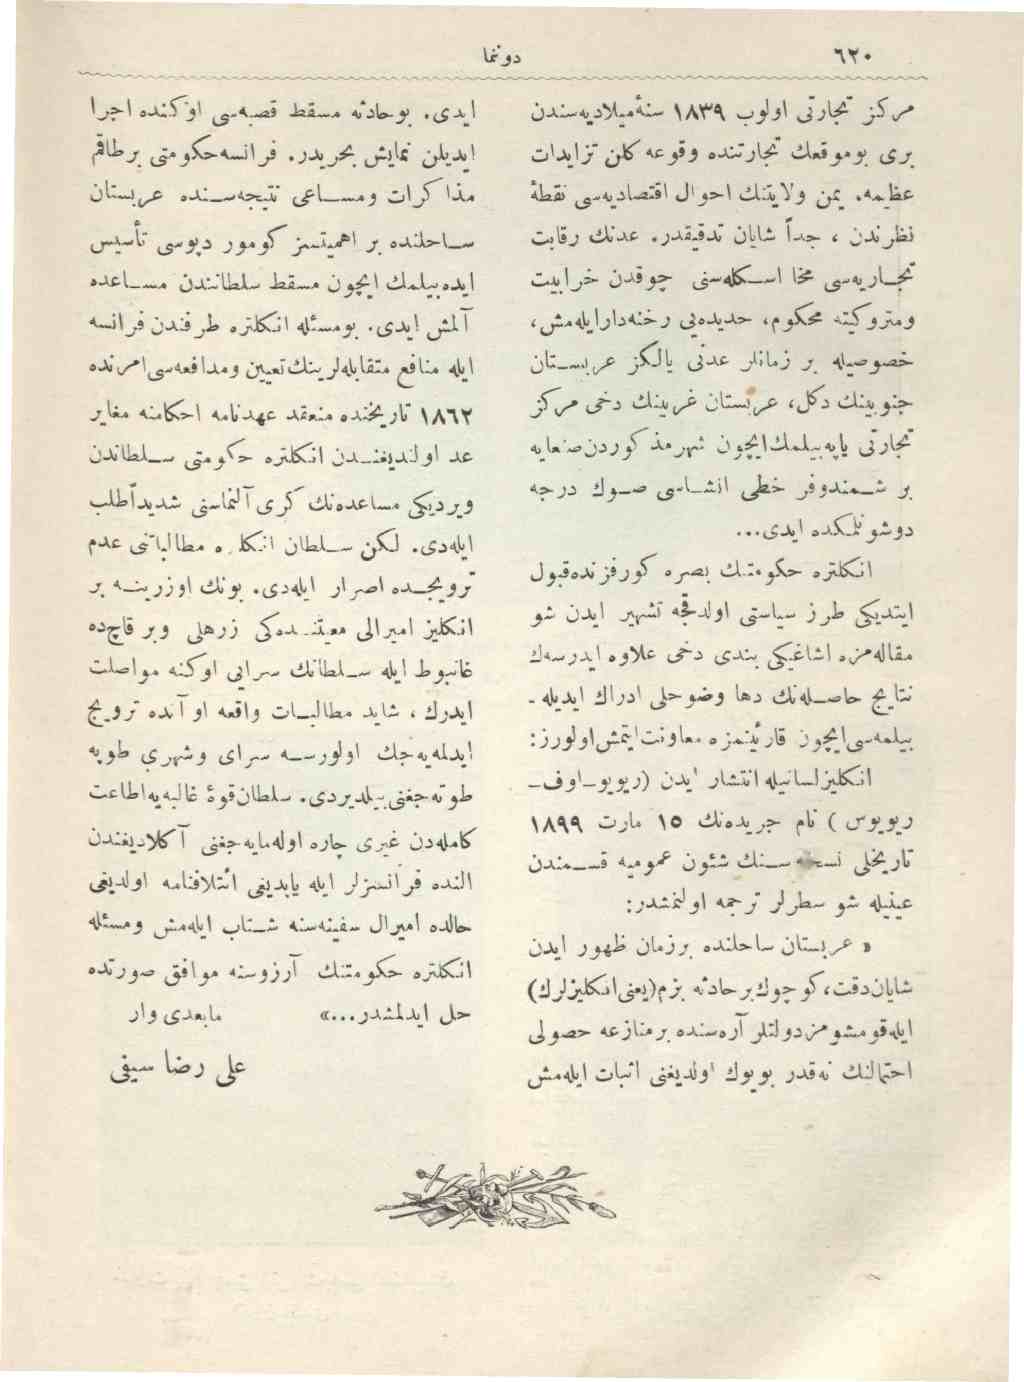 ٦٢٠
دوننما
مركز تجارتی اولوب ١٨٣٩ سنهٔ میلادیه‌سندن
بری بوموقعك تجارتنده وقوعه كلن تزایدات
عظیمه. یمن ولایتنك احوال اقتصادیه‌سی نقطهٔ
نظرندن ، جداً شایان تدقیقدر. عدنك رقابت
تجاریه‌سی مخا اسكله‌سنی چوقدن خرابیت
ومتروكیته محكوم، حدیده‌یی رخنه‌دار ایله‌مش،
خصوصیله بر زمانلر عدنی یالكز عربستان
جنوبینك دكل، عربستان غربینك دخی مركز
تجارتی یاپه‌بیلمك ایچون شهر مذكوردن صنعایه
بر شمندوفر خطی انشاسی صوك درجه
دوشونلمكده ایدی...
انكلتره حكومتنك بصره كورفزنده قبول
ایتدیكی طرز سیاستی اولدقجه تشهیر ایدن شو
مقاله‌مزه اشاغیكی بندی دخی علاوه ایدرسه‌ك
نتایج حاصله‌نك دها وضوحلی ادراك ایدیله ـ
بیلمه‌سی ایچون قارئینمزه معاونت ایتمش اولورز:
انكلیز لسانیله انتشار ایدن (ریویو ـ اوف ـ
ریویوس) نام جریده‌نك ١٥ مارت ١٨٩٩
تاریخلی نسخه‌سنك شئون عمومیه قسمندن
عینیله شو سطرلر ترجمه اولنمشدر:
» عربستان ساحلنده برزمان ظهور ایدن
شایان دقت، كوچوك بر حادثه بزم (یعنی انكلیزلرك)
ایله قومشومز دولتلر آره‌سنده بر منازعه حصولی
احتمالنك نه‌قدر بویوك اولدیغنی اثبات ایله‌مش
ایدی. بوحادثه مسقط قصبه‌سی اوكنده اجرا
ایدیلن نمایش بحریدر. فرانسه حكومتی برطاقم
مذاكرات ومساعی نتیجه‌سنده عربستان
ساحلنده بر اهمیتسز كومور دپوسی تأسیس
ایده‌بیلمك ایچون مسقط سلطانندن مساعده
آلمش ایدی. بومسئله انكلتره طرفندن فرانسه
ایله منافع متقابله‌لرینك تعیین ومدافعه‌سی امرنده
١٨٦٢ تاریخنده منعقد عهدنامه احكامنه مغایر
عد اولندیغندن انكلتره حكومتی سلطاندن
ویردیكی مساعده‌نك كری آلنماسنی شدیداً طلب
ایله‌دی. لكن سلطان انكلتره مطالباتنی عدم
ترویجده اصرار ایله‌دی. بونك اوزرینه بر
انكلیز امیرالی معیتنده‌كی زرهلی وبر قاچ‌ده
غانبوط ایله سلطانك سرایی اوكنه مواصلت
ایدرك ، شاید مطالبات واقعه او آنده ترویج
ایدلمه‌یه‌جك اولورسه سرای وشهری طوپه
طوته‌جغنی بیلدیردی. سلطان قوهٔ غالبه‌یه اطاعت
كامله‌دن غیری چاره اوله‌مایه‌جغنی آكلادیغندن
النده فرانسزلر ایله یاپدیغی ائتلافنامه اولدیغی
حالده امیرال سفینه‌سنه شتاب ایله‌مش ومسئله
انكلتره حكومتنك آرزوسنه موافق صورتده
حل ایدلمشدر...«
مابعدی وار
علی رضا سیفی